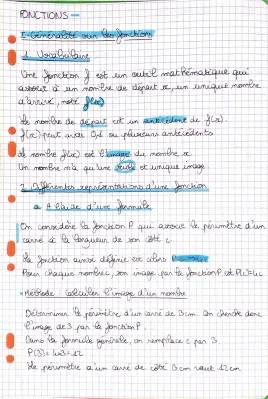 FONCTIONS
I. Généralité sur les fonctions
1. Vocabulaire
Une fonction f est un outil mathématique qui
associe à un nombre de départ x, un unique nombre
d'arrivé, noté f(x)
Le nombre de départ est un antécédent de f(x).
f(x) peut avoir 0,1 ou plusieurs antécédents
Le nombre f(x) est l'image du nombre x.
Un nombre n'a qu'une seule et unique image
2. Différentes représentations d'une fonction
a. A l'aide d'une formule
On considère la fonction P qui associe le périmètre d'un
carré à la longueur de son côté c.
La fonction ainsi définie est alors P
Pour chaque nombre c, son image par la fonction P est P(c)=4c
• Méthode: calculer l'image d'un nombre
Déterminer le périmètre d'un carré de 3cm. On cherche donc
l'image de 3 par la fonction P.
Dans la formule générale, on remplace c par 3.
P(3) = 4x3=12
Le périmètre d'un carré de côté 3cm vaut 12cm